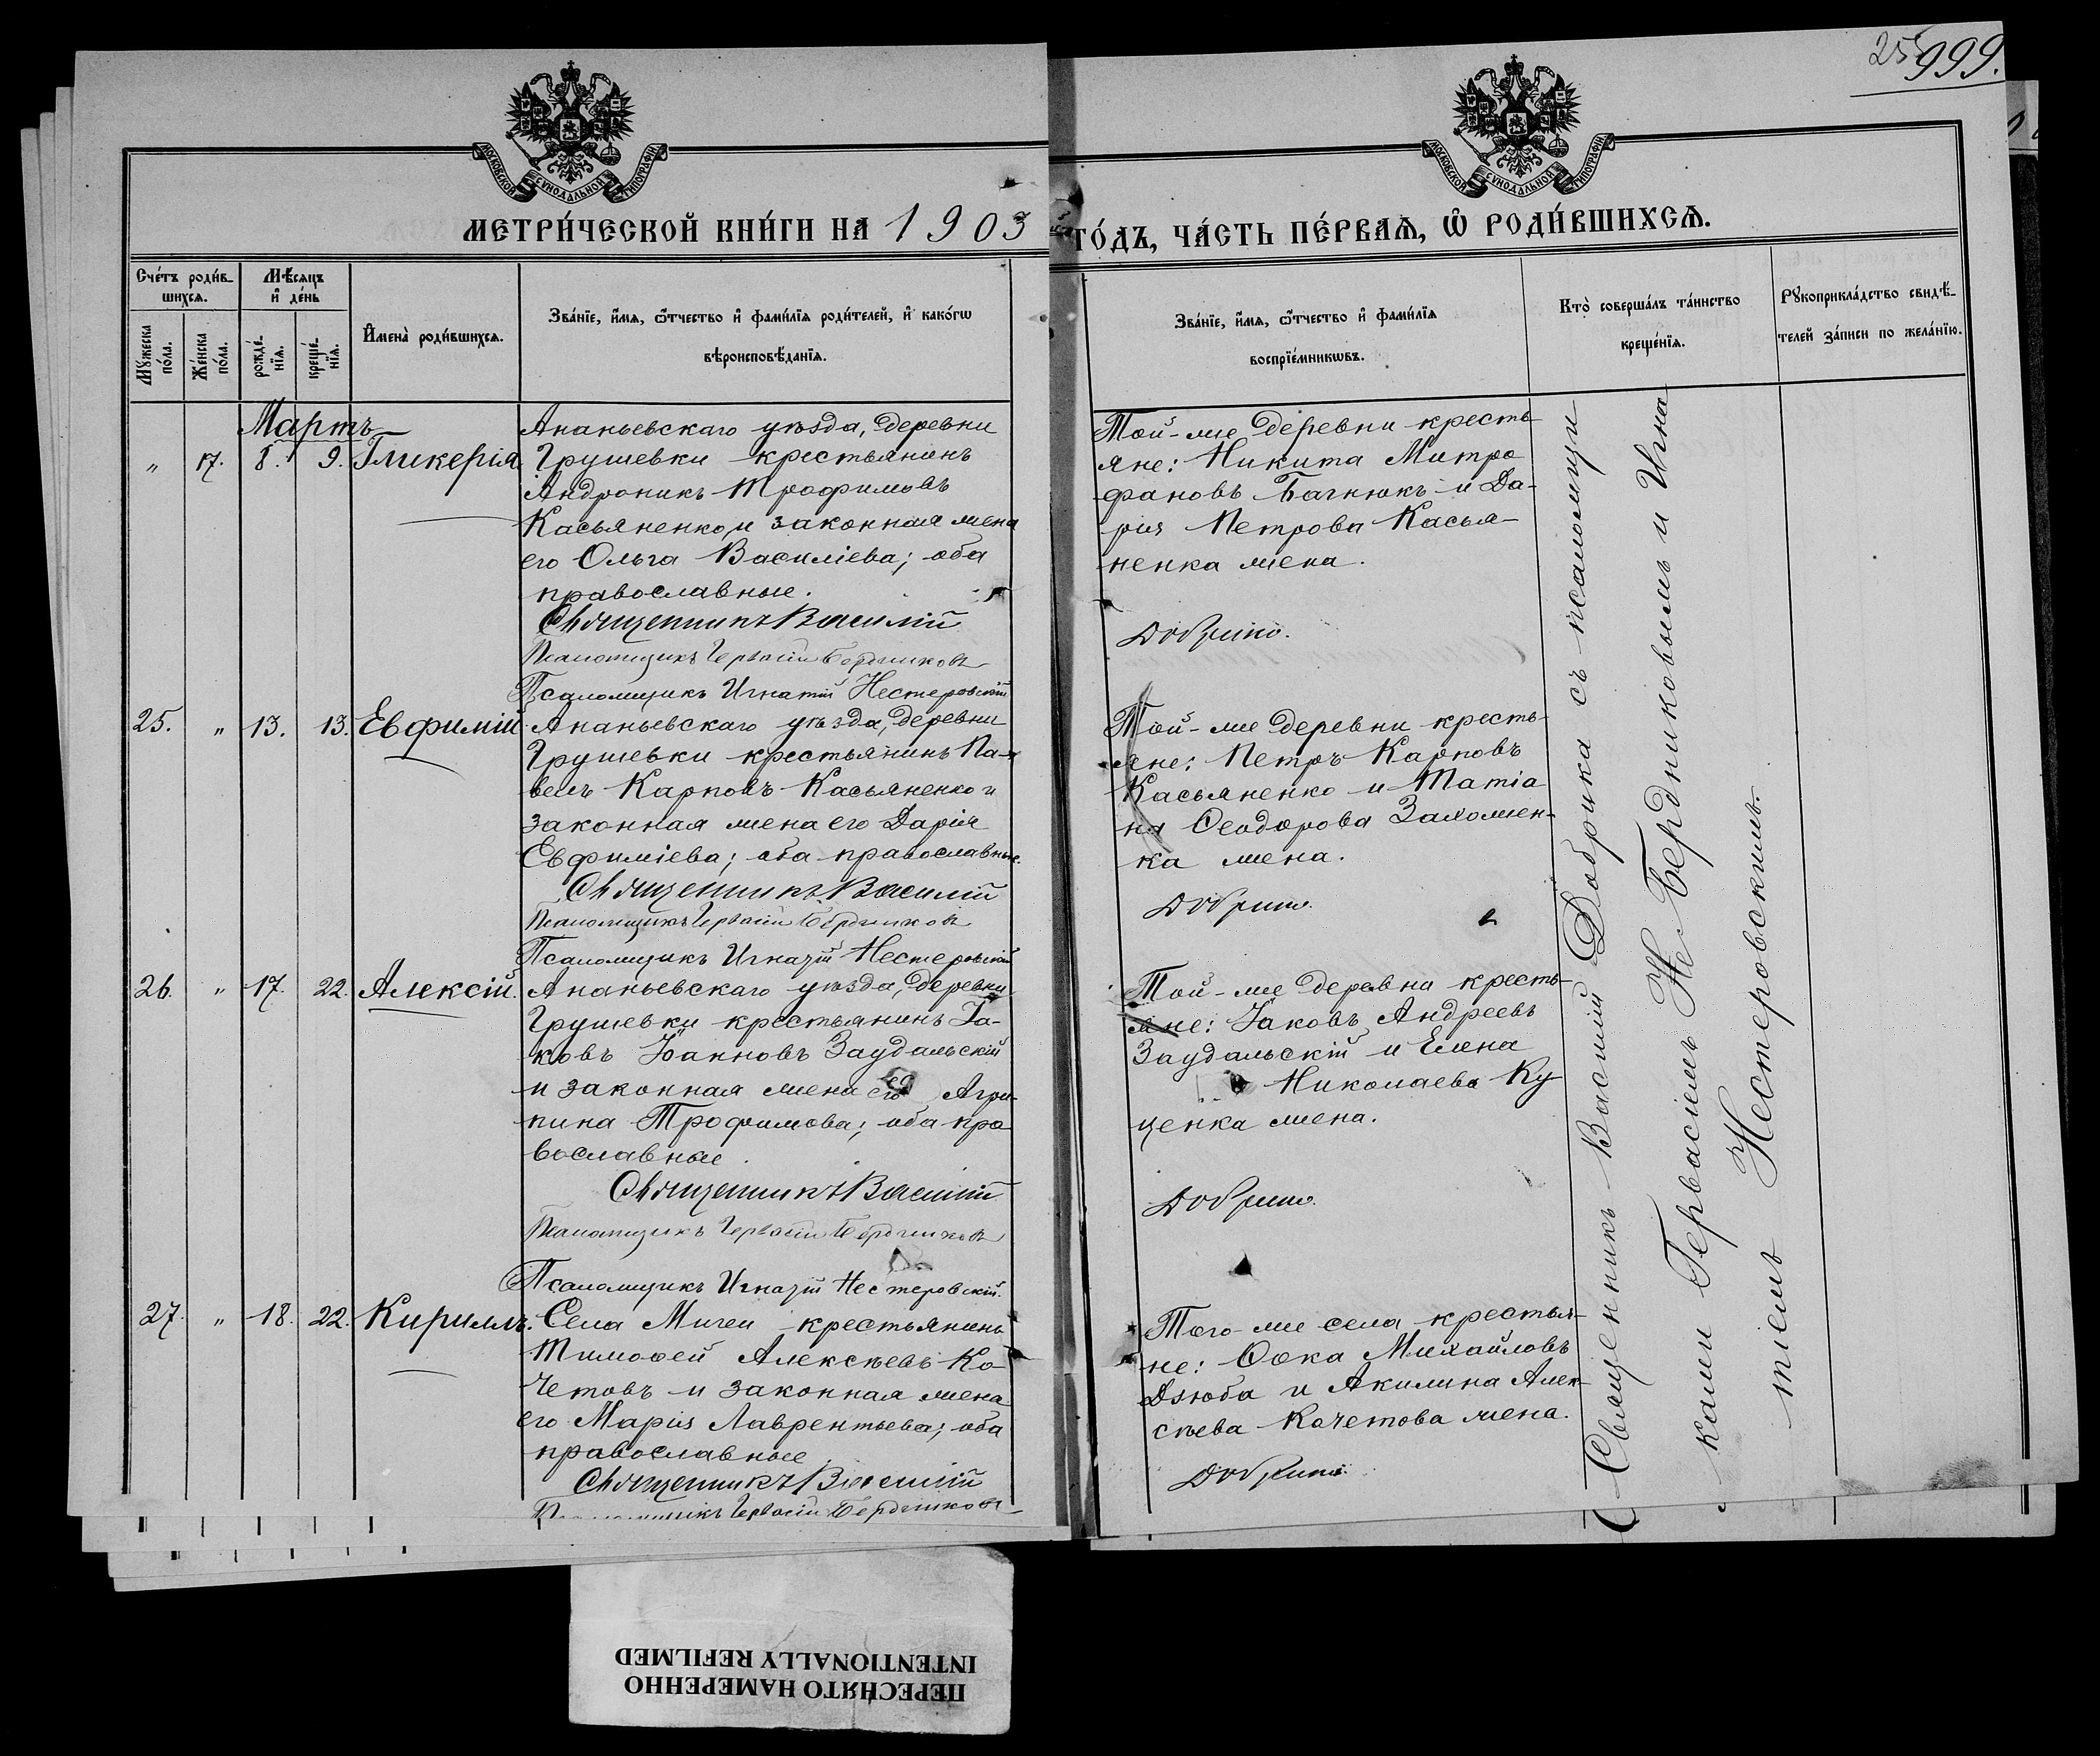 25
999.
МОСКОВСКОЙ СѴНОДАЛЬНОЙ ТИПОГРАФІИ
МОСКОВСКОЙ СѴНОДАЛЬНОЙ ТИПОГРАФІИ
МЕТРИ́ЧЕСКОЙ КНИ́ГИ НА 1903
ГО́ДЪ, ЧА́СТЬ ПЕ́РВАѦ, Ѡ҆ РОДИ́ВШИХСѦ.
Сче́тъ роди́в-
шихсѧ.
Мѣ́сѧцъ
и҆ де́нь
Мꙋ́жеска по́ла.
Же́нска по́ла.
рожде́-
нїѧ.
креще́-
нїѧ.
И҆мена̀ роди́вшихсѧ.
Зва́нїе, и҆́мѧ, ѻ҆́тчество и҆ фами́лїѧ роди́телей, и҆ како́гѡ
вѣроисповѣ́данїѧ.
Зва́нїе, и҆́мѧ, ѻ҆́тчество и҆ фами́лїѧ
воспрїе́мникѡвъ.
Кто̀ соверша́лъ та́инство
креще́нїѧ.
Рꙋкоприкла́дство свидѣ́-
телей за́писи по жела́нїю.
Мартъ
" 17. 8. 9. Гликерія
Ананьевскаго уѣзда, деревни
Грушевки крестьянинъ
Андроникъ Трофимовъ
Касьяненко, и законная жена
его Ольга Василіева; оба
православные.
Священникъ Василій
Псаломщикъ Гервасій Бердниковъ
Псаломщикъ Игнатій Нестеровскій
Той-же деревни кресть-
яне: Никита Митро
фановъ Багнюкъ и Да-
рія Петрова Касья-
ненка жена.
Добрико.
25. " 13. 13. Евфимій
Ананьевскаго уѣзда, деревни
Грушевки крестьянинъ Па-
велъ Карповъ Касьяненко и
законная жена его Дарія
Евфиміева; оба православные.
Священникъ Василій
Псаломщикъ Гервасій Бердниковъ
Псаломщикъ Игнатій Нестеровскій
Той-же деревни кресть-
яне: Петръ Карповъ
Касьяненко и Татіа
на Ѳеодорова Захожен-
ка жена.
Добрико.
26. " 17. 22. Алексій.
Ананьевскаго уѣзда, деревни
Грушевки крестьянинъ Іа-
ковъ Іоанновъ Заудальскій
и законная жена его Агри-
пина Трофимова; оба пра
вославные.
Священникъ Василій
Псаломщикъ Гервасій Бердниковъ
Псаломщикъ Игнатій Нестеровскій.
Той-же деревни кресть-
яне: Іаковъ Андреевъ
Заудальскій и Елена
Николаева Ку
ценка жена.
Добрико.
27. " 18. 22. Кириллъ.
Села Мигеи крестьянинъ
Тимоѳей Алексѣевъ Ко-
четовъ и законная жена
его Марія Лаврентьева; оба
православные
Священникъ Василій
Псаломщикъ Гервасій Бердниковъ
Того-же села крестья-
не: Ѳока Михайловъ
Дзюба и Акилина Алек-
сѣева Кочетова жена.
Добрико.
Священникъ Василій Добрика съ псаломщи
ками Гервасіемъ Бердниковымъ и Игна
тіемъ Нестеровскимъ.
ПЕРЕСНЯТО НАМЕРЕННО
INTENTIONALLY REFILMED